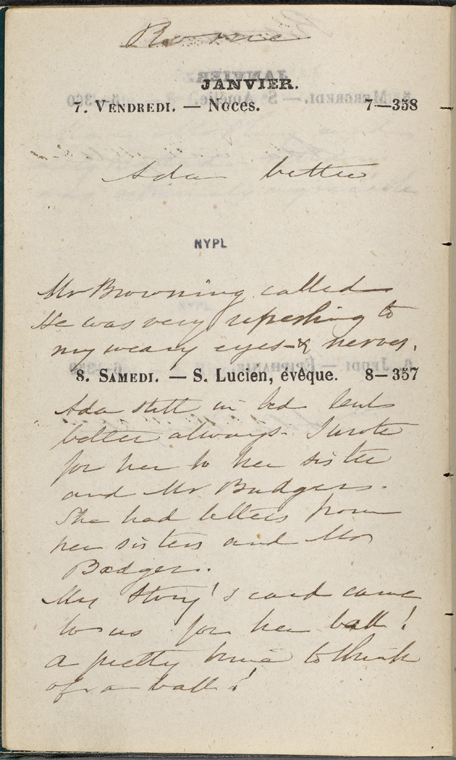 Rome
JANVIER.
7. VENDREDI. — Noces. 7—358
Ada better
NYPL
Mr Browning called
He was very refreshing to
my weary eyes & nerves.
8. SAMEDI. — S. Lucien, évêque. 8—357
Ada still in bed but
better always. I wrote
for her to her sister
and Mr Badgers.
She had letters from
her sisters and Mr
Badger.
Mrs Story's card came
to us for her ball!
a pretty time to think
of a ball!